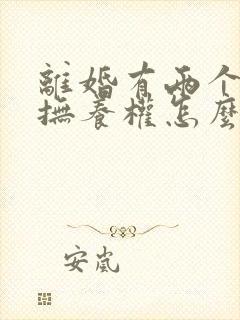 離婚有兩个
撫養權怎麼
安嵐